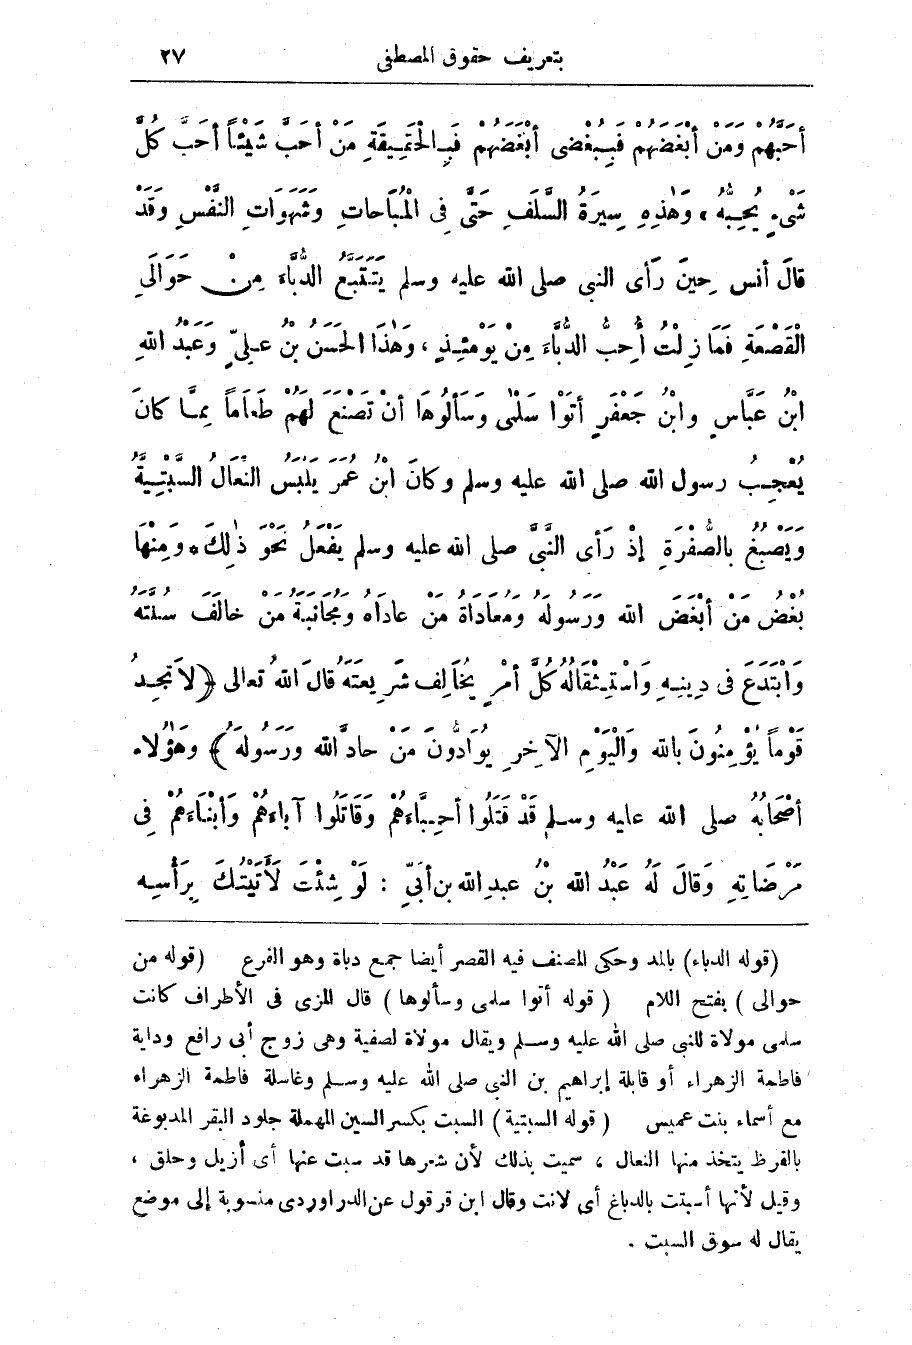 بتعريف حقوق المصطفى ٢٧
أَحَبَّهُمْ وَمَنْ أَبْغَضَهُمْ فَبِبُغْضِى أَبْغَضَهُمْ فَبِالْحَقِيقَةِ مَنْ أَحَبَّ شَيْئًا أَحَبَّ كُلَّ
شَىْءٍ يُحِبُّهُ ، وَهٰذِهِ سِيرَةُ السَّلَفِ حَتَّى فِى الْمُبَاحَاتِ وشَهَوَاتِ النَّفْسِ وَقَدْ
قالَ أنس حِينَ رَأى النبى صلى الله عليه وسلم يَتَتَبَّعُ الدُّبَّاءَ مِنْ حَوَالَىِ
الْقَصْعَةِ فَمَا زِلْتُ أُحِبُّ الدُّبَّاءَ مِنْ يَوْمَئِذٍ ، وَهٰذَا الحَسَنُ بنُ عَلِىّ وَعَبْدُ اللهِ
ابْنُ عَبَّاسٍ وابْنُ جَعْفَرٍ أَتَوْا سَلْمٰى وَسَأَلُوهَا أنْ تَصْنَعَ لَهُمْ طَعَاماً مِمَّا كانَ
يُعْجِبُ رسول الله صلى الله عليه وسلم وكانَ ابْنُ عُمَرَ يَلْبَسُ النِّعَالَ السِّبْتِيَّةَ
وَيَصْبُغُ بالصُّفْرَةِ إذْ رَأى النَّبىَّ صلى الله عليه وسلم يَفْعَلُ نَحْوَ ذٰلِكَ * وَمِنْهَا
بُغْضُ مَنْ أَبْغَضَ اللهَ وَرَسُولَهُ ومُعَادَاةُ مَنْ عادَاهُ ومُجَانَبَةُ مَنْ خالَفَ سُنَّتَهُ
وَابْتَدَعَ فى دِينِهِ وَاسْتِثْقَالُهُ كُلَّ أمْرٍ يُخَالِف شَرِيعَتَهُ قالَ اللهُ تعالى ﴿لاَ تَجِدُ
قَوْماً يُؤْمِنُونَ باللهِ وَالْيَوْمِ الآخِرِ يُوَادُّونَ مَنْ حادَّ اللهَ ورَسُولَهُ﴾ وَهَؤُلاءِ
أصْحَابُهُ صلى الله عليه وسلم قَدْ قَتَلُوا أَحِبَّاءَهُمْ وَقَاتَلُوا آبَاءَهُمْ وَأَبْنَاءَهُمْ فِى
مَرْضَاتِهِ وَقَالَ لَهُ عَبْدُ الله بنُ عبدِ الله بن أُبَىّ : لَوْ شِئْتَ لأَتَيْتُكَ بِرَأْسِهِ
(قوله الدباء) بالمد وحكى المصنف فيه القصر أيضا جمع دباة وهو القرع (قوله من
حوالى) بفتح اللام (قوله أتوا سلمى وسألوها) قال المزى فى الأطراف كانت
سلمى مولاة للنبى صلى الله عليه وسلم ويقال مولاة لصفية وهى زوج أبى رافع وداية
فاطمة الزهراء أو قابلة إبراهيم بن النبى صلى الله عليه وسلم وغاسلة فاطمة الزهراء
مع أسماء بنت عميس (قوله السبتية) السبت بكسر السين المهملة جلود البقر المدبوغة
بالقرظ يتخذ منها النعال ، سميت بذلك لأن شعرها قد سبت عنها أى أزيل وحلق ،
وقيل لأنها أسبتت بالدباغ أى لانت وقال ابن قرقول عن الدراوردى منسوبة إلى موضع
يقال له سوق السبت .